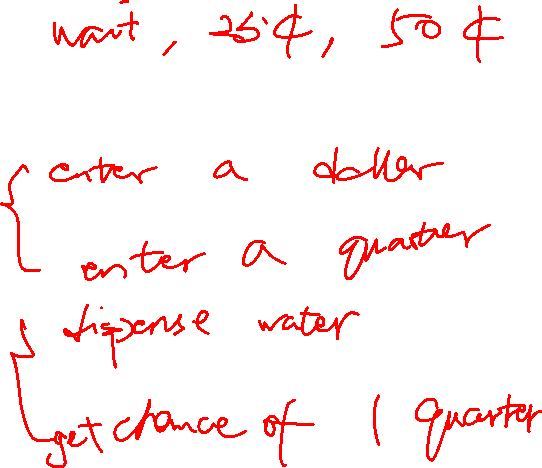 wait, 25¢, 50¢
enter a dollar
enter a quarter
dispense water
get change of 1 quarter